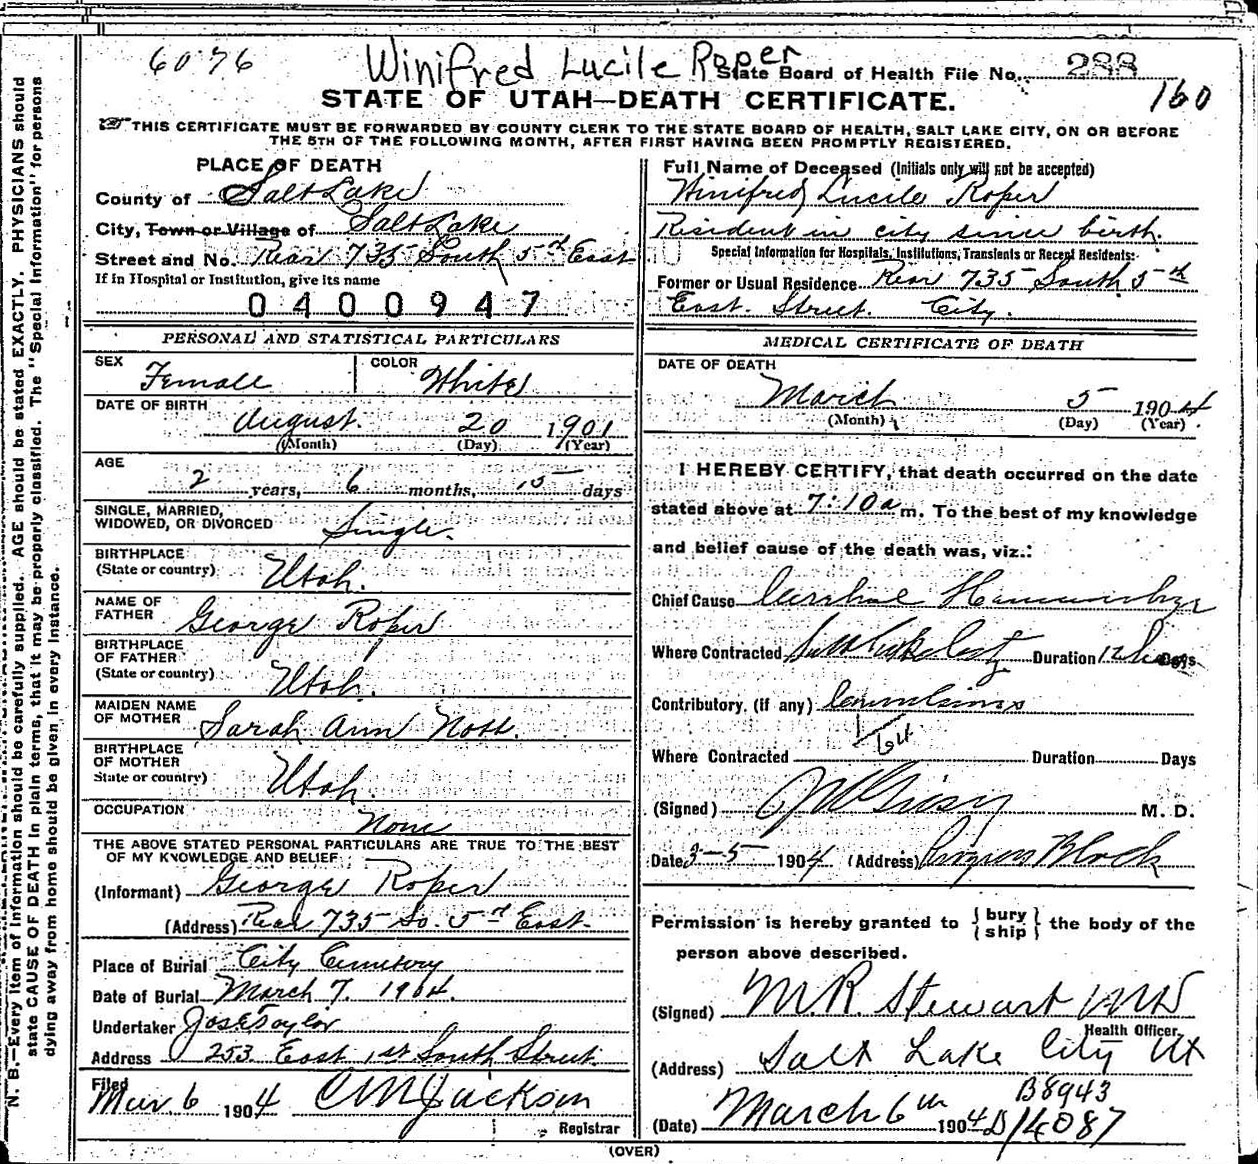 6076 Winifred Lucile Roper
State Board of Health File No. 288
160
STATE OF UTAH—DEATH CERTIFICATE.
THIS CERTIFICATE MUST BE FORWARDED BY COUNTY CLERK TO THE STATE BOARD OF HEALTH, SALT LAKE CITY, ON OR BEFORE
THE 5TH OF THE FOLLOWING MONTH, AFTER FIRST HAVING BEEN PROMPTLY REGISTERED.
PLACE OF DEATH
County of Salt Lake
City, Town or Village of Salt Lake
Street and No. Rear 735 South 5th East
If in Hospital or Institution, give its name
0400947
PERSONAL AND STATISTICAL PARTICULARS
SEX Female COLOR White
DATE OF BIRTH
August 20 1901
(Month) (Day) (Year)
AGE
2 years, 6 months, 15 days
SINGLE, MARRIED,
WIDOWED, OR DIVORCED Single.
BIRTHPLACE
(State or country) Utah.
NAME OF
FATHER George Roper
BIRTHPLACE
OF FATHER
(State or country) Utah.
MAIDEN NAME
OF MOTHER Sarah Ann
BIRTHPLACE
OF MOTHER
State or country) Utah.
OCCUPATION None
THE ABOVE STATED PERSONAL PARTICULARS ARE TRUE TO THE BEST
OF MY KNOWLEDGE AND BELIEF
(Informant) George Roper
(Address) Rear 735 So. 5th East.
Place of Burial City Cemetery
Date of Burial March 7. 1904.
Undertaker Jos E Taylor
Address 253 East 1st South Street.
Filed
Mar 6 1904 C M Jackson
Registrar
Full Name of Deceased (Initials only will not be accepted)
Winifred Lucile Roper
Resident in city since birth.
Special Information for Hospitals, Institutions, Transients or Recent Residents:
Former or Usual Residence Rear 735 South 5th
East. Street. City.
MEDICAL CERTIFICATE OF DEATH
DATE OF DEATH
March 5 1904
(Month) (Day) (Year)
I HEREBY CERTIFY, that death occurred on the date
stated above at 7:10 a m. To the best of my knowledge
and belief cause of the death was, viz.:
Chief Cause
Where Contracted Salt Lake City Duration 12 Days
Contributory, (if any) Convulsions
Where Contracted Duration Days
(Signed) M. D.
Date 3-5 1904 (Address) Progress Block
Permission is hereby granted to { bury ship } the body of the
person above described.
(Signed) M. R. Stewart MD
Health Officer.
(Address) Salt Lake City Ut
B8943
(Date) March 6th 1904 D14087
(OVER)
N. B.—Every item of information should be carefully supplied. AGE should be stated EXACTLY. PHYSICIANS should
state CAUSE OF DEATH in plain terms, that it may be properly classified. The "Special Information" for persons
dying away from home should be given in every instance.